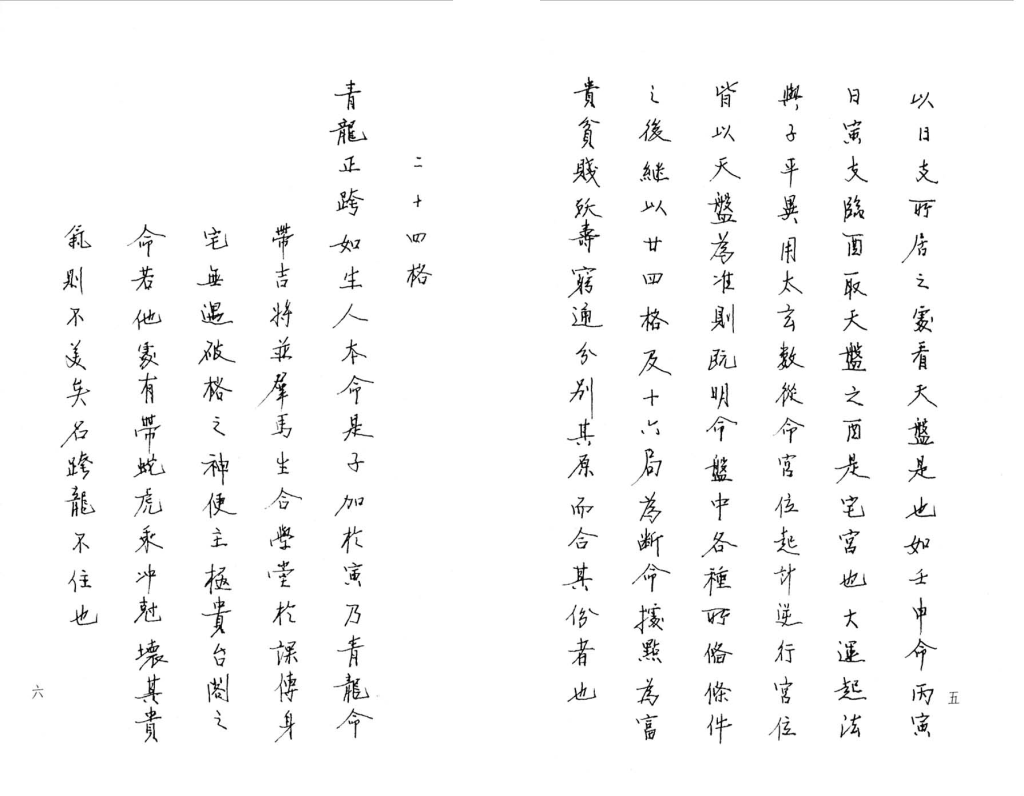 以日支所居之處看天盤是也如壬申命丙寅
日寅支臨酉取天盤之酉是宅宮也大運起法
與子平異用太玄數從命宮位起計逆行宮位
皆以天盤為准則既明命盤中各種所俻條件
之後継以廿四格及十六局為断命據點為富
貴貧賤殀壽窮通分别其原而合其份者也
五
二十四格
青龍正跨如生人本命是子加於寅乃青龍命
帶吉將並羣馬生合學堂於課傳身
宅無遇破格之神便主極貴台閣之
命若他處有帶蛇虎乘冲尅壞其貴
氣則不美矣名跨龍不住也
六